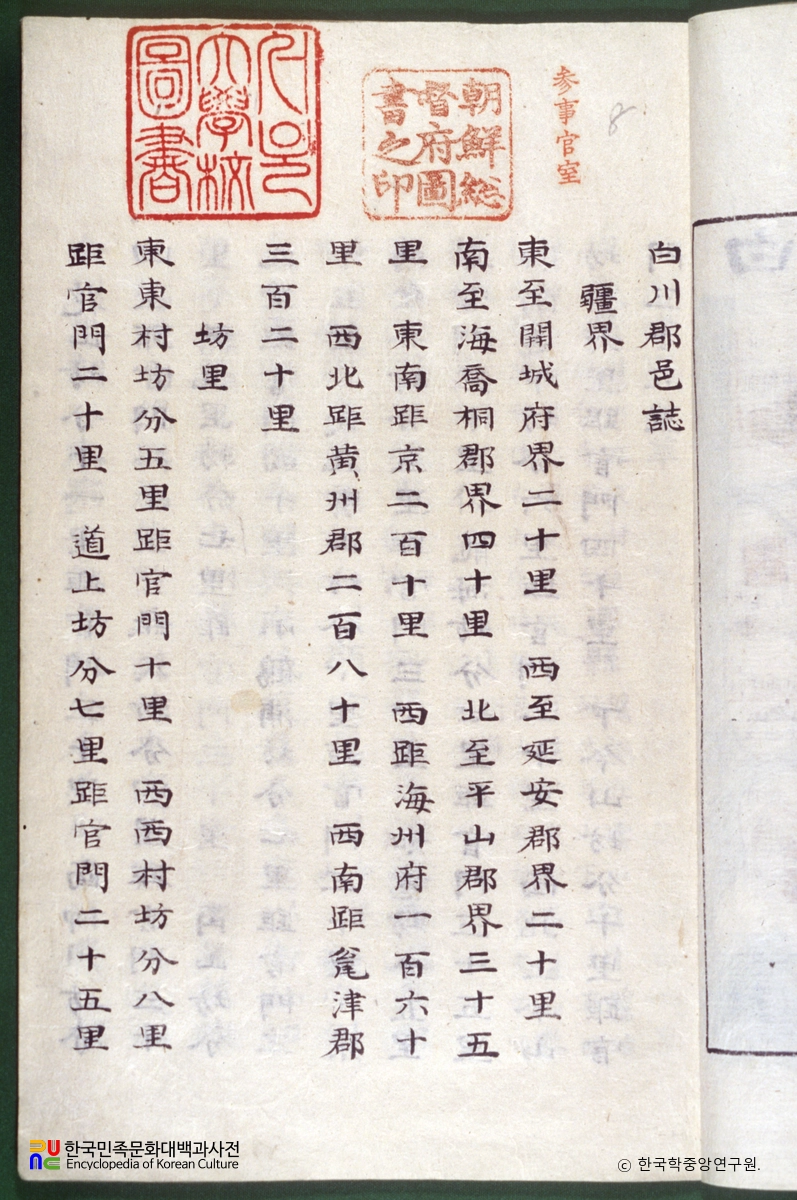 参事官室
8
朝鮮総
督府圖
書之印
서울
大學校
圖書
白川郡邑誌
疆界
東至開城府界二十里 西至延安郡界二十里
南至海喬桐郡界四十里 北至平山郡界三十五
里 東南距京二百十里三 西距海州府一百六十
里 西北距黃州郡二百八十里 西南距瓮津郡
三百二十里
坊里
東東村坊分五里距官門十里 西西村坊分八里
距官門二十里 道上坊分七里距官門二十五里
한국민족문화대백과사전
Encyclopedia of Korean Culture
ⓒ 한국학중앙연구원.